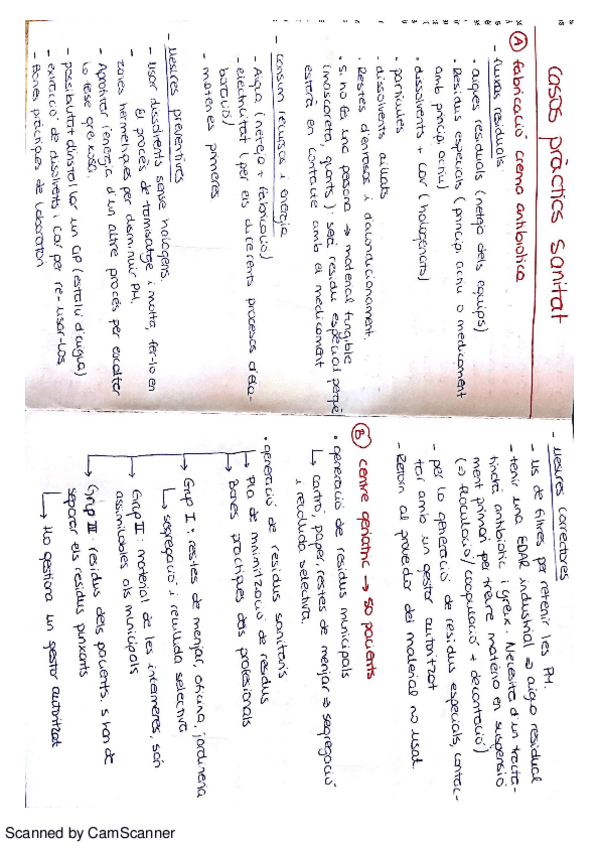 casos pràctics sanitat
A fabricació crema antibiòtica
- fluxos residuals
• aigües residuals (neteja dels equips)
• Residus especials (principi actiu o medicament
amb principi actiu)
• dissolvents + COV (halogenats)
• partícules
• dissolvents aïllats
• Restes d'envasos i d'acondicionament.
• Si ho fa una persona → material fungible
(mascareta, guants): serà residu especial perquè
estarà en contacte amb el medicament
- consum recursos i energia
- Aigua (neteja + fabricació)
- electricitat (per els diferents processos d'ela-
boració)
- matèries primeres
- Mesures preventives
- usar dissolvents sense halogens.
- El procés de tamisatge i mòlta, fer-lo en
zones hermètiques per disminuir PM.
- Aprofitar l'energia d'un altre procés per escalfar
la fase greixosa.
- possibilitat d'instal·lar un CIP (estalvi d'aigua)
- extracció de dissolvents i COV per re-usar-los
- Bones pràctiques de laboratori
- Mesures correctores
- ús de filtres per retenir les PM.
- tenir una EDAR industrial ⇒ aigua residual
tindrà antibiòtic i greix. Necessita d'un tracta-
ment primari per treure matèria en suspensió
(⇒ floculació/coagulació + decantació)
- per la generació de residus especials, contac-
tar amb un gestor autoritzat
- Retorn al proveedor del material no usat.
B centre geriàtric → 50 pacients
• generació de residus municipals
↳ cartró, paper, restes de menjar ⇒ segregació
i recollida selectiva.
• generació de residus sanitaris
→ Pla de minimització de residus
→ Bones pràctiques dels professionals
→ Grup I: restes de menjar, oficina, jardineria
↳ segregació i recollida selectiva
→ Grup II: material de les infermeres, són
assimilables als municipals
→ Grup III: residus dels pacients, s'han de
separar els residus punxants
↳ Ho gestiona un gestor autoritzat
Scanned by CamScanner